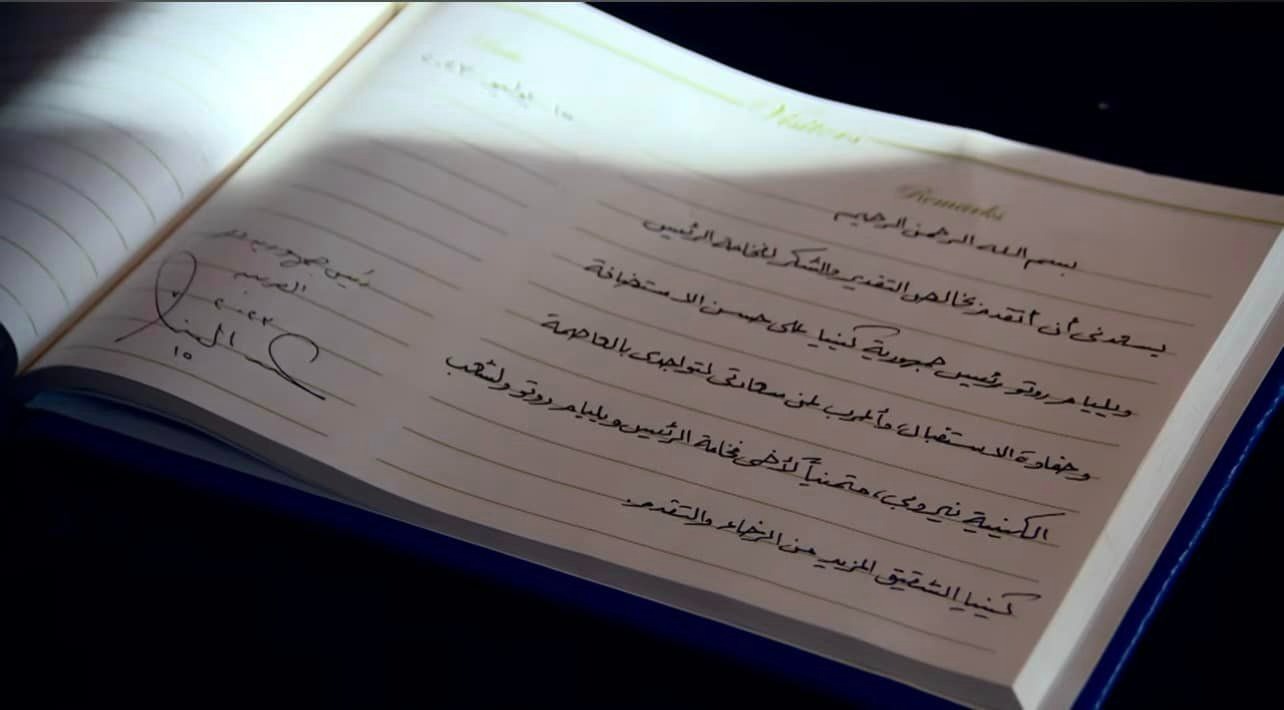 Visitors
Remarks
Date
١٥ يوليو ٢٠٢٣
بسم الله الرحمن الرحيم
يسعدنى أن أتقدم بخالص التقدير والشكر لفخامة الرئيس
ويليام روتو رئيس جمهورية كينيا على حسن الاستضافة
وحفاوة الاستقبال، وأعرب عن سعادتى لتواجدى بالعاصمة
الكينية نيروبى، متمنياً لأخى فخامة الرئيس ويليام روتو ولشعب
كينيا الشقيق المزيد من الرخاء والتقدم.
رئيس جمهورية مصر
العربية
٢٠٢٣
١٥